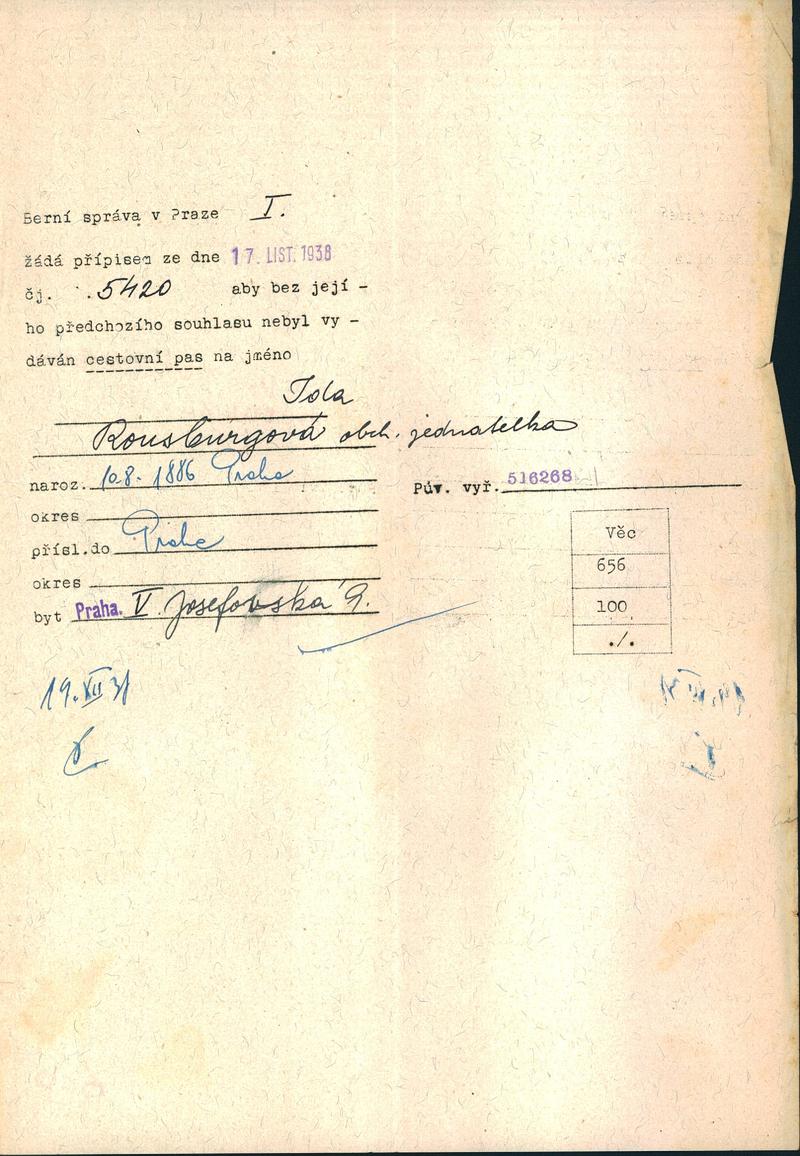 Berní správa v Praze I.
žádá přípisem ze dne 17. LIST. 1938
čj. 5420 aby bez její –
ho předchozího souhlasu nebyl vy –
dáván cestovní pas na jméno
Ida
Rousburgová obch. jednatelka
naroz. 10.8. 1886 Praha
Pův. vyř. 516268
okres
přísl.do Prahe
okres
byt Praha. V. Josefovská 9.
Věc
656
100
./.
19. XII 31